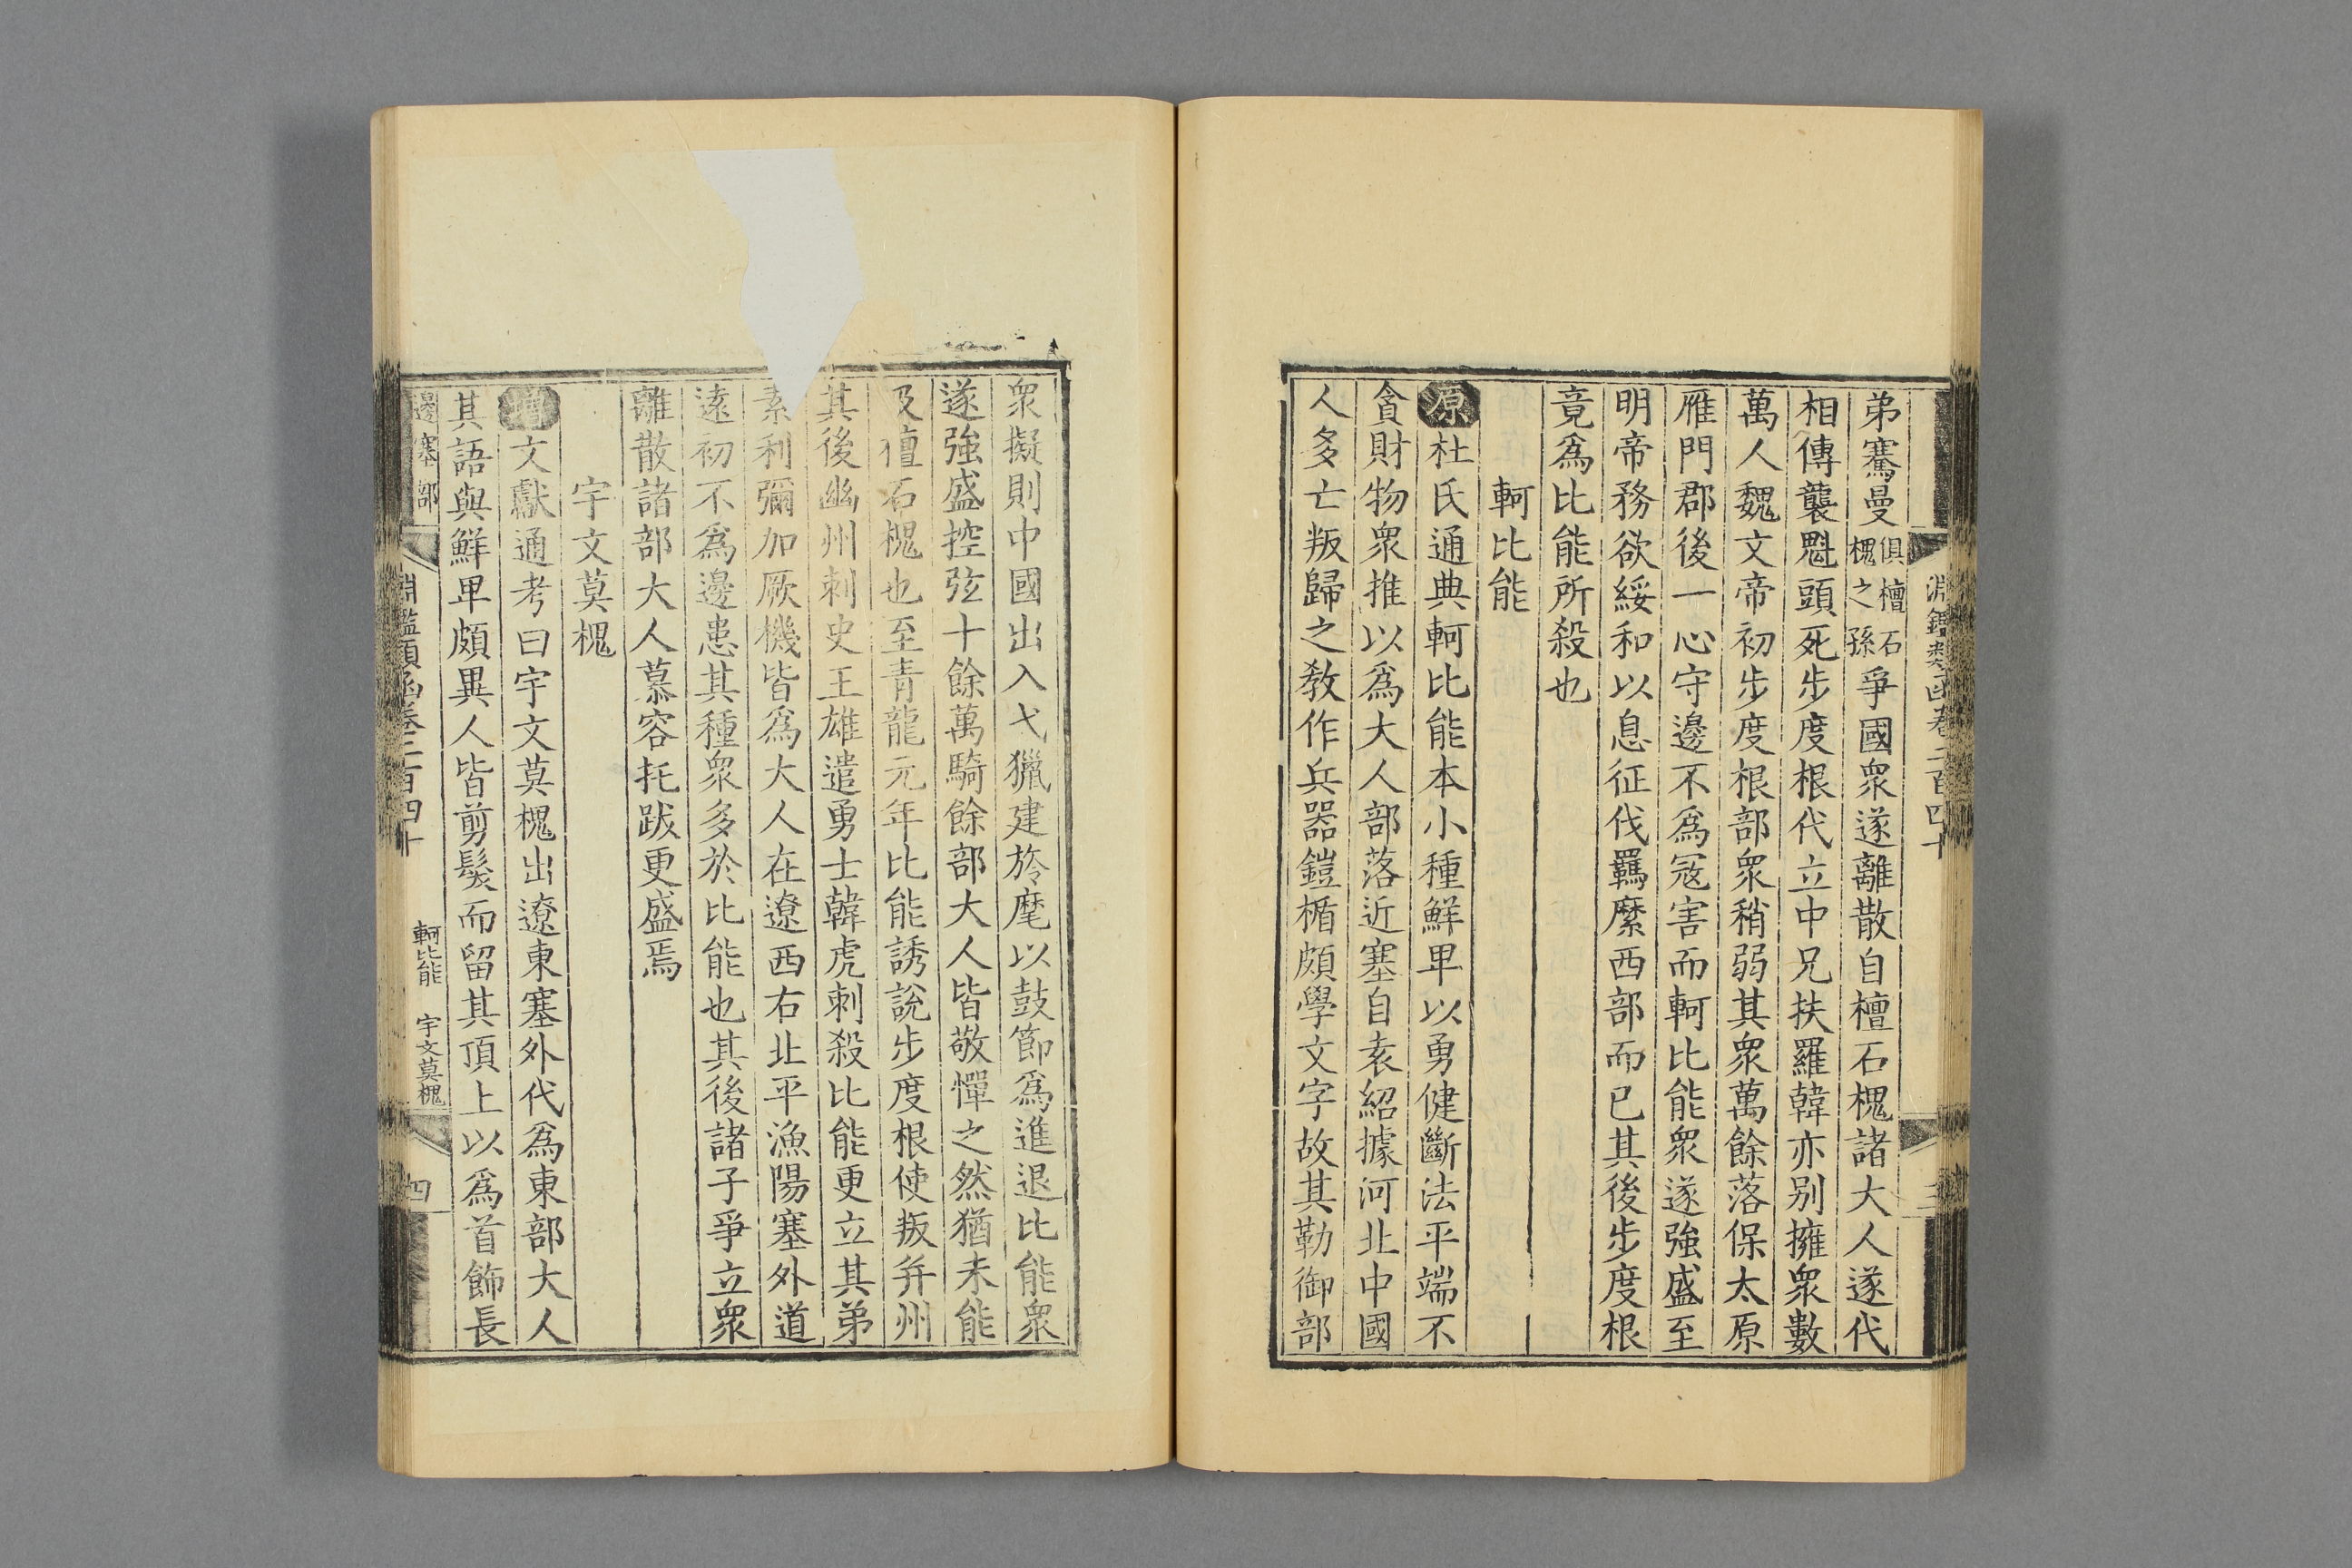 淵鑑類函卷二百四十
三
弟騫曼俱檀石槐之孫爭國衆遂離散自檀石槐諸大人遂代
相傳襲魁頭死步度根代立中兄扶羅韓亦别擁衆數
萬人魏文帝初步度根部衆稍弱其衆萬餘落保太原
雁門郡後一心守邊不爲寇害而軻比能衆遂強盛至
明帝務欲綏和以息征伐羈縻西部而已其後步度根
竟爲比能所殺也
軻比能
原杜氏通典軻比能本小種鮮卑以勇健斷法平端不
貪財物衆推以爲大人部落近塞自袁紹據河北中國
人多亡叛歸之敎作兵器鎧楯頗學文字故其勒御部
衆擬則中國出入弋獵建旍麾以鼓節爲進退比能衆
遂強盛控弦十餘萬騎餘部大人皆敬憚之然猶未能
及檀石槐也至青龍元年比能誘説步度根使叛并州
其後幽州刺史王雄遣勇士韓虎刺殺比能更立其弟
素利彌加厥機皆爲大人在遼西右北平漁陽塞外道
遠初不爲邊患其種衆多於比能也其後諸子爭立衆
離散諸部大人慕容拓跋更盛焉
宇文莫槐
增文獻通考曰宇文莫槐出遼東塞外代爲東部大人
其語與鮮卑頗異人皆剪髮而留其頂上以爲首飾長
邊塞部
淵鑑類函卷二百四十
軻比能 宇文莫槐
四